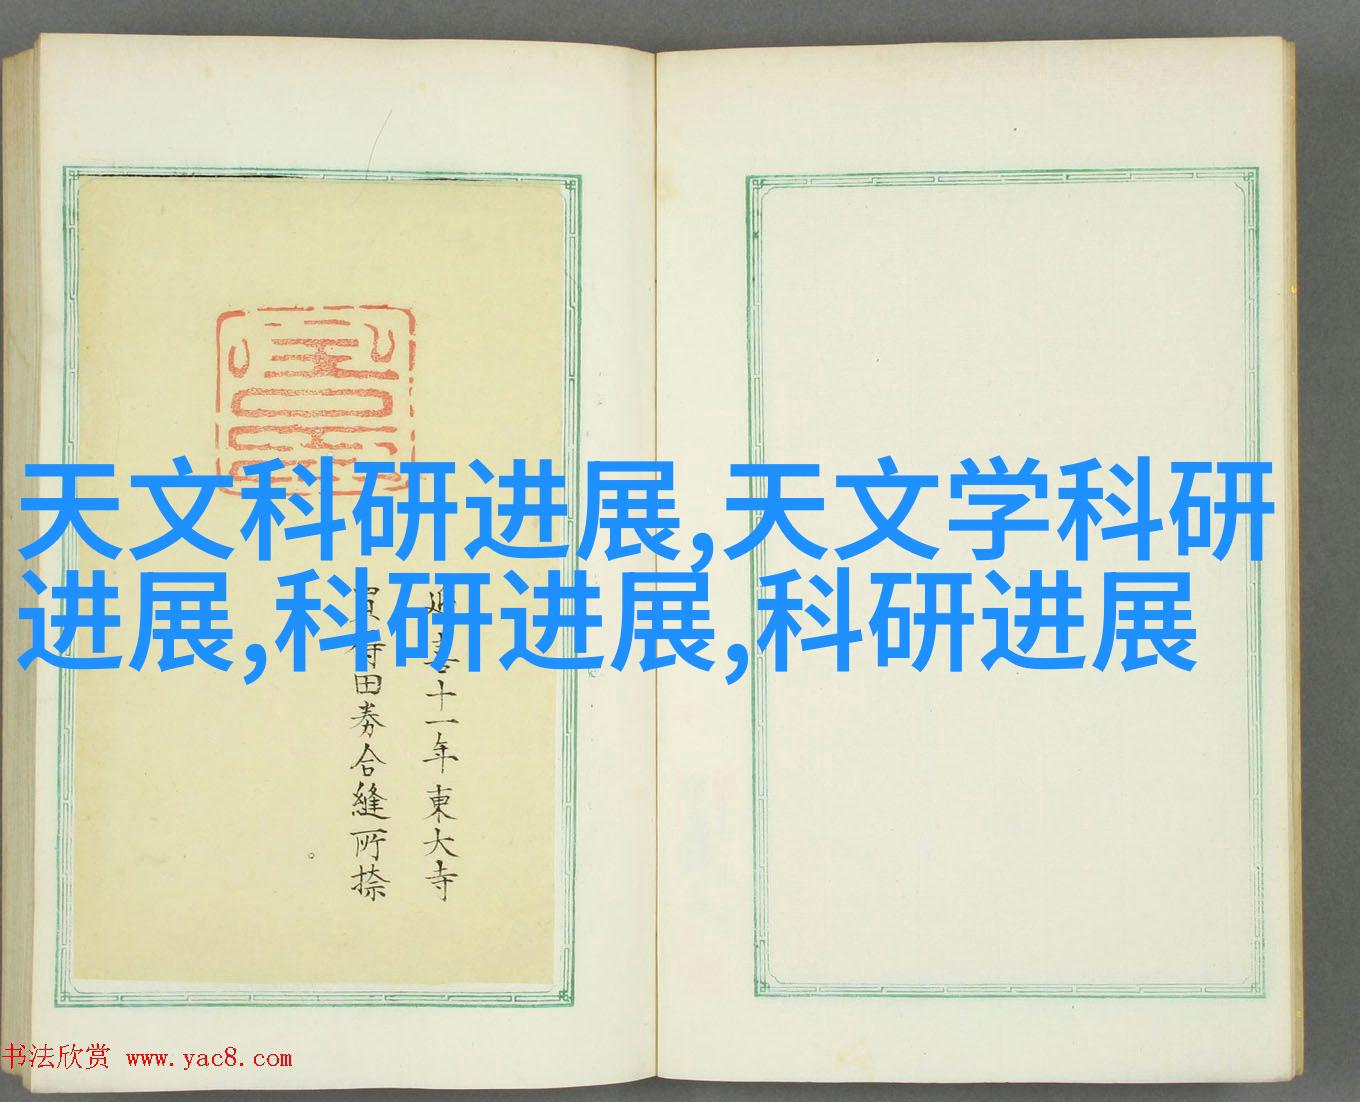 天文科研进展,天文学科研
进展,科研进展,科研进展
延喜十一年東大寺
買得田券合縫所捺
。
书法欣赏 www.yac8.com